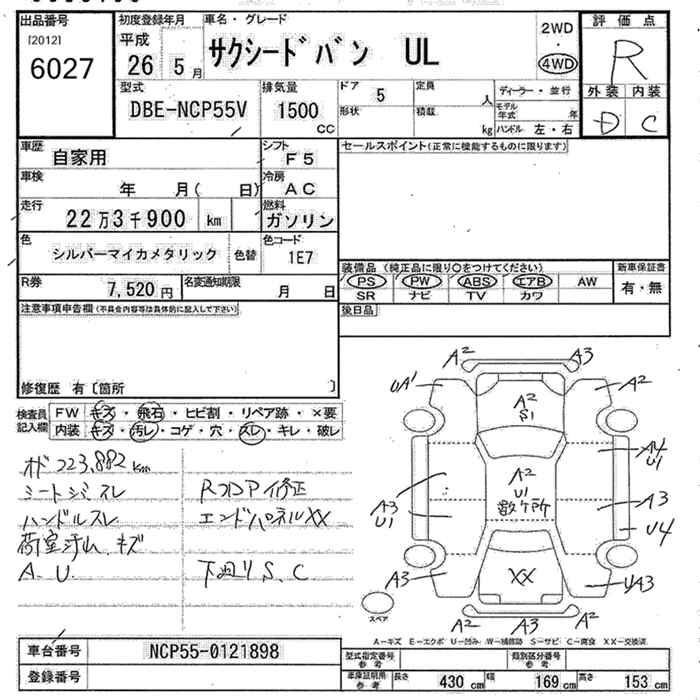 出品番号
[2012]
6027
初度登録年月
平成
26 5月
車名・グレード
サクシードバン UL
2WD
・
4WD
評価点
R
外装 内装
D C
型式
DBE-NCP55V
排気量
1500
CC
ドア
5
形状
定員
人
積載
kg
ディーラー・並行
モデル年式 年
ハンドル 左・右
車歴
自家用
シフト
F5
セールスポイント(正常に機能するものに限ります)
車検
年 月( 日)
冷房
AC
走行
22万3千900 km
燃料
ガソリン
色
シルバーマイカメタリック
色替
色コード
1E7
装備品 (純正品に限り○をつけてください)
新車保証書
PS PW ABS エアB AW
有・無
SR ナビ TV カワ
R券
7,520円
名変通知期限
月 日
後日品
注意事項申告欄(不具合内容等は具体的に記入して下さい)
修復歴 有〔箇所 〕
検査員
記入欄
FW キズ・飛石・ヒビ割・リペア跡・×要
内装 キズ・汚レ・コゲ・穴・スレ・キレ・破レ
オド223,882km
シートジミ.スレ
ハンドルスレ
荷室汚レ.キズ
A.U.
Rフロア修正
エンドパネルXX
下廻りS.C
A2 A3
UA1 A2
A2
S1
A4
U1
A2
U1
数ヶ所
A3
U1
A3
U4
A3
XX
UA3
A2 A3 A2
スペア
A−キズ E−エクボ U−凹み W−補修跡 S−サビ C−腐食 XX−交換済
車台番号
NCP55-0121898
登録番号
型式指定番号
参考
類別区分番号
参考
車庫証明用
参考
長さ
430 cm
幅
169 cm
高さ
153 cm